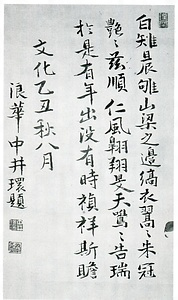 白雉晨雊山梁之邊縞衣翯〻朱冠
艶〻茲順仁風翱翔旻天鶱〻告瑞
於是有年出没有時禎祥斯瞻
文化乙丑秋八月
浪華中井環題